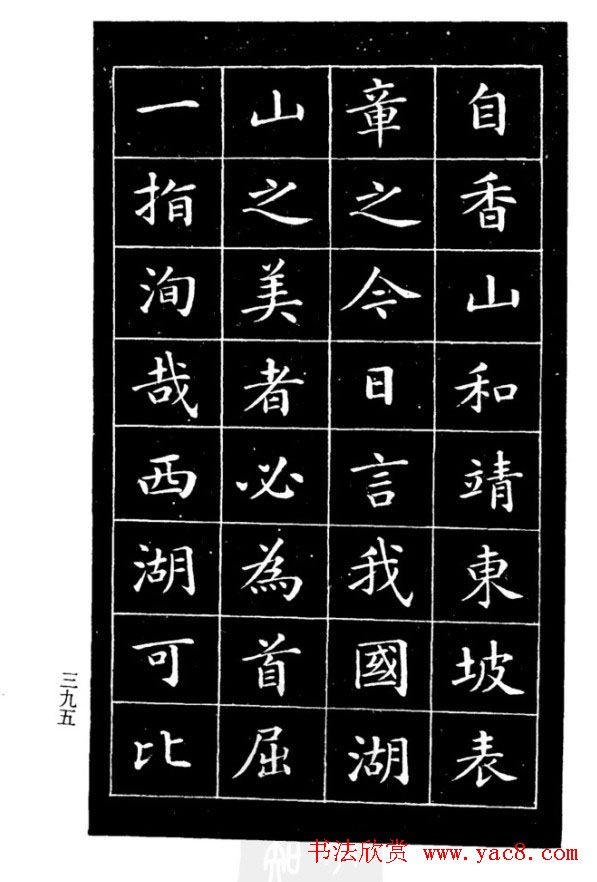 自香山和靖東坡表
章之今日言我國湖
山之美者必為首屈
一指洵哉西湖可比
三九五
书法欣赏 www.yac8.com